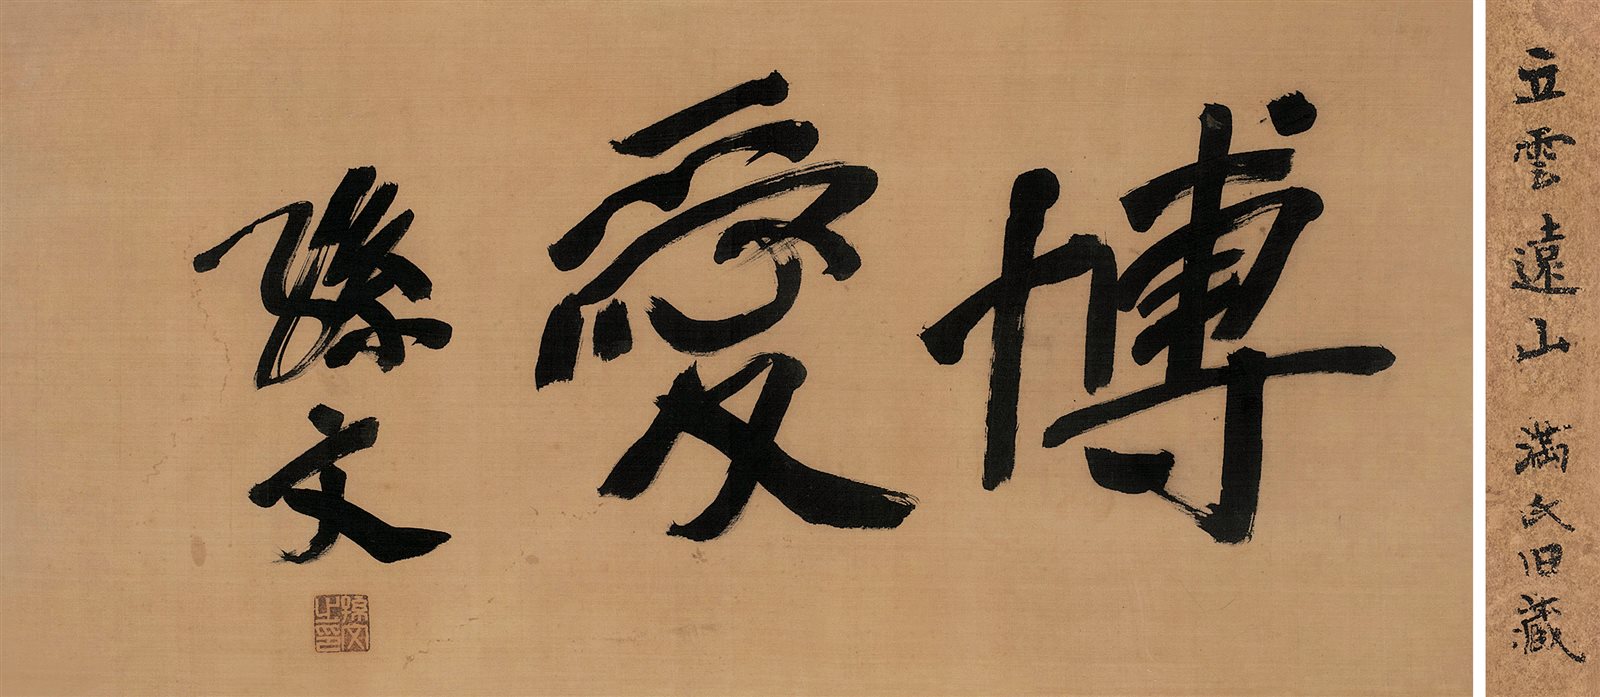 博愛
孫文
孫文之印
立雲遠山 滿文旧藏